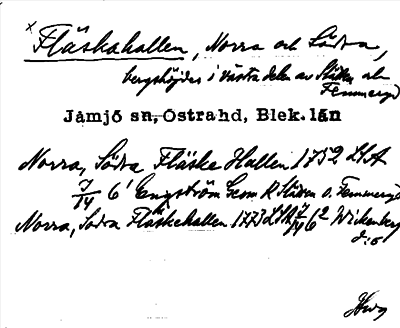 x Fläskahallen, Norra och Södra,
bergshöjder i västra delen av Stäken och
Femmeryd
Jämjö sn, Östrahd, Blek. län
Norra, Södra Fläske Hallen 1752 LSA
7/14 6¹ Engström Geom K Stäken o. Femmeryd
Norra, Södra Fläskehallen 1773 LSA 7/14 6² Wickenberg
d:o